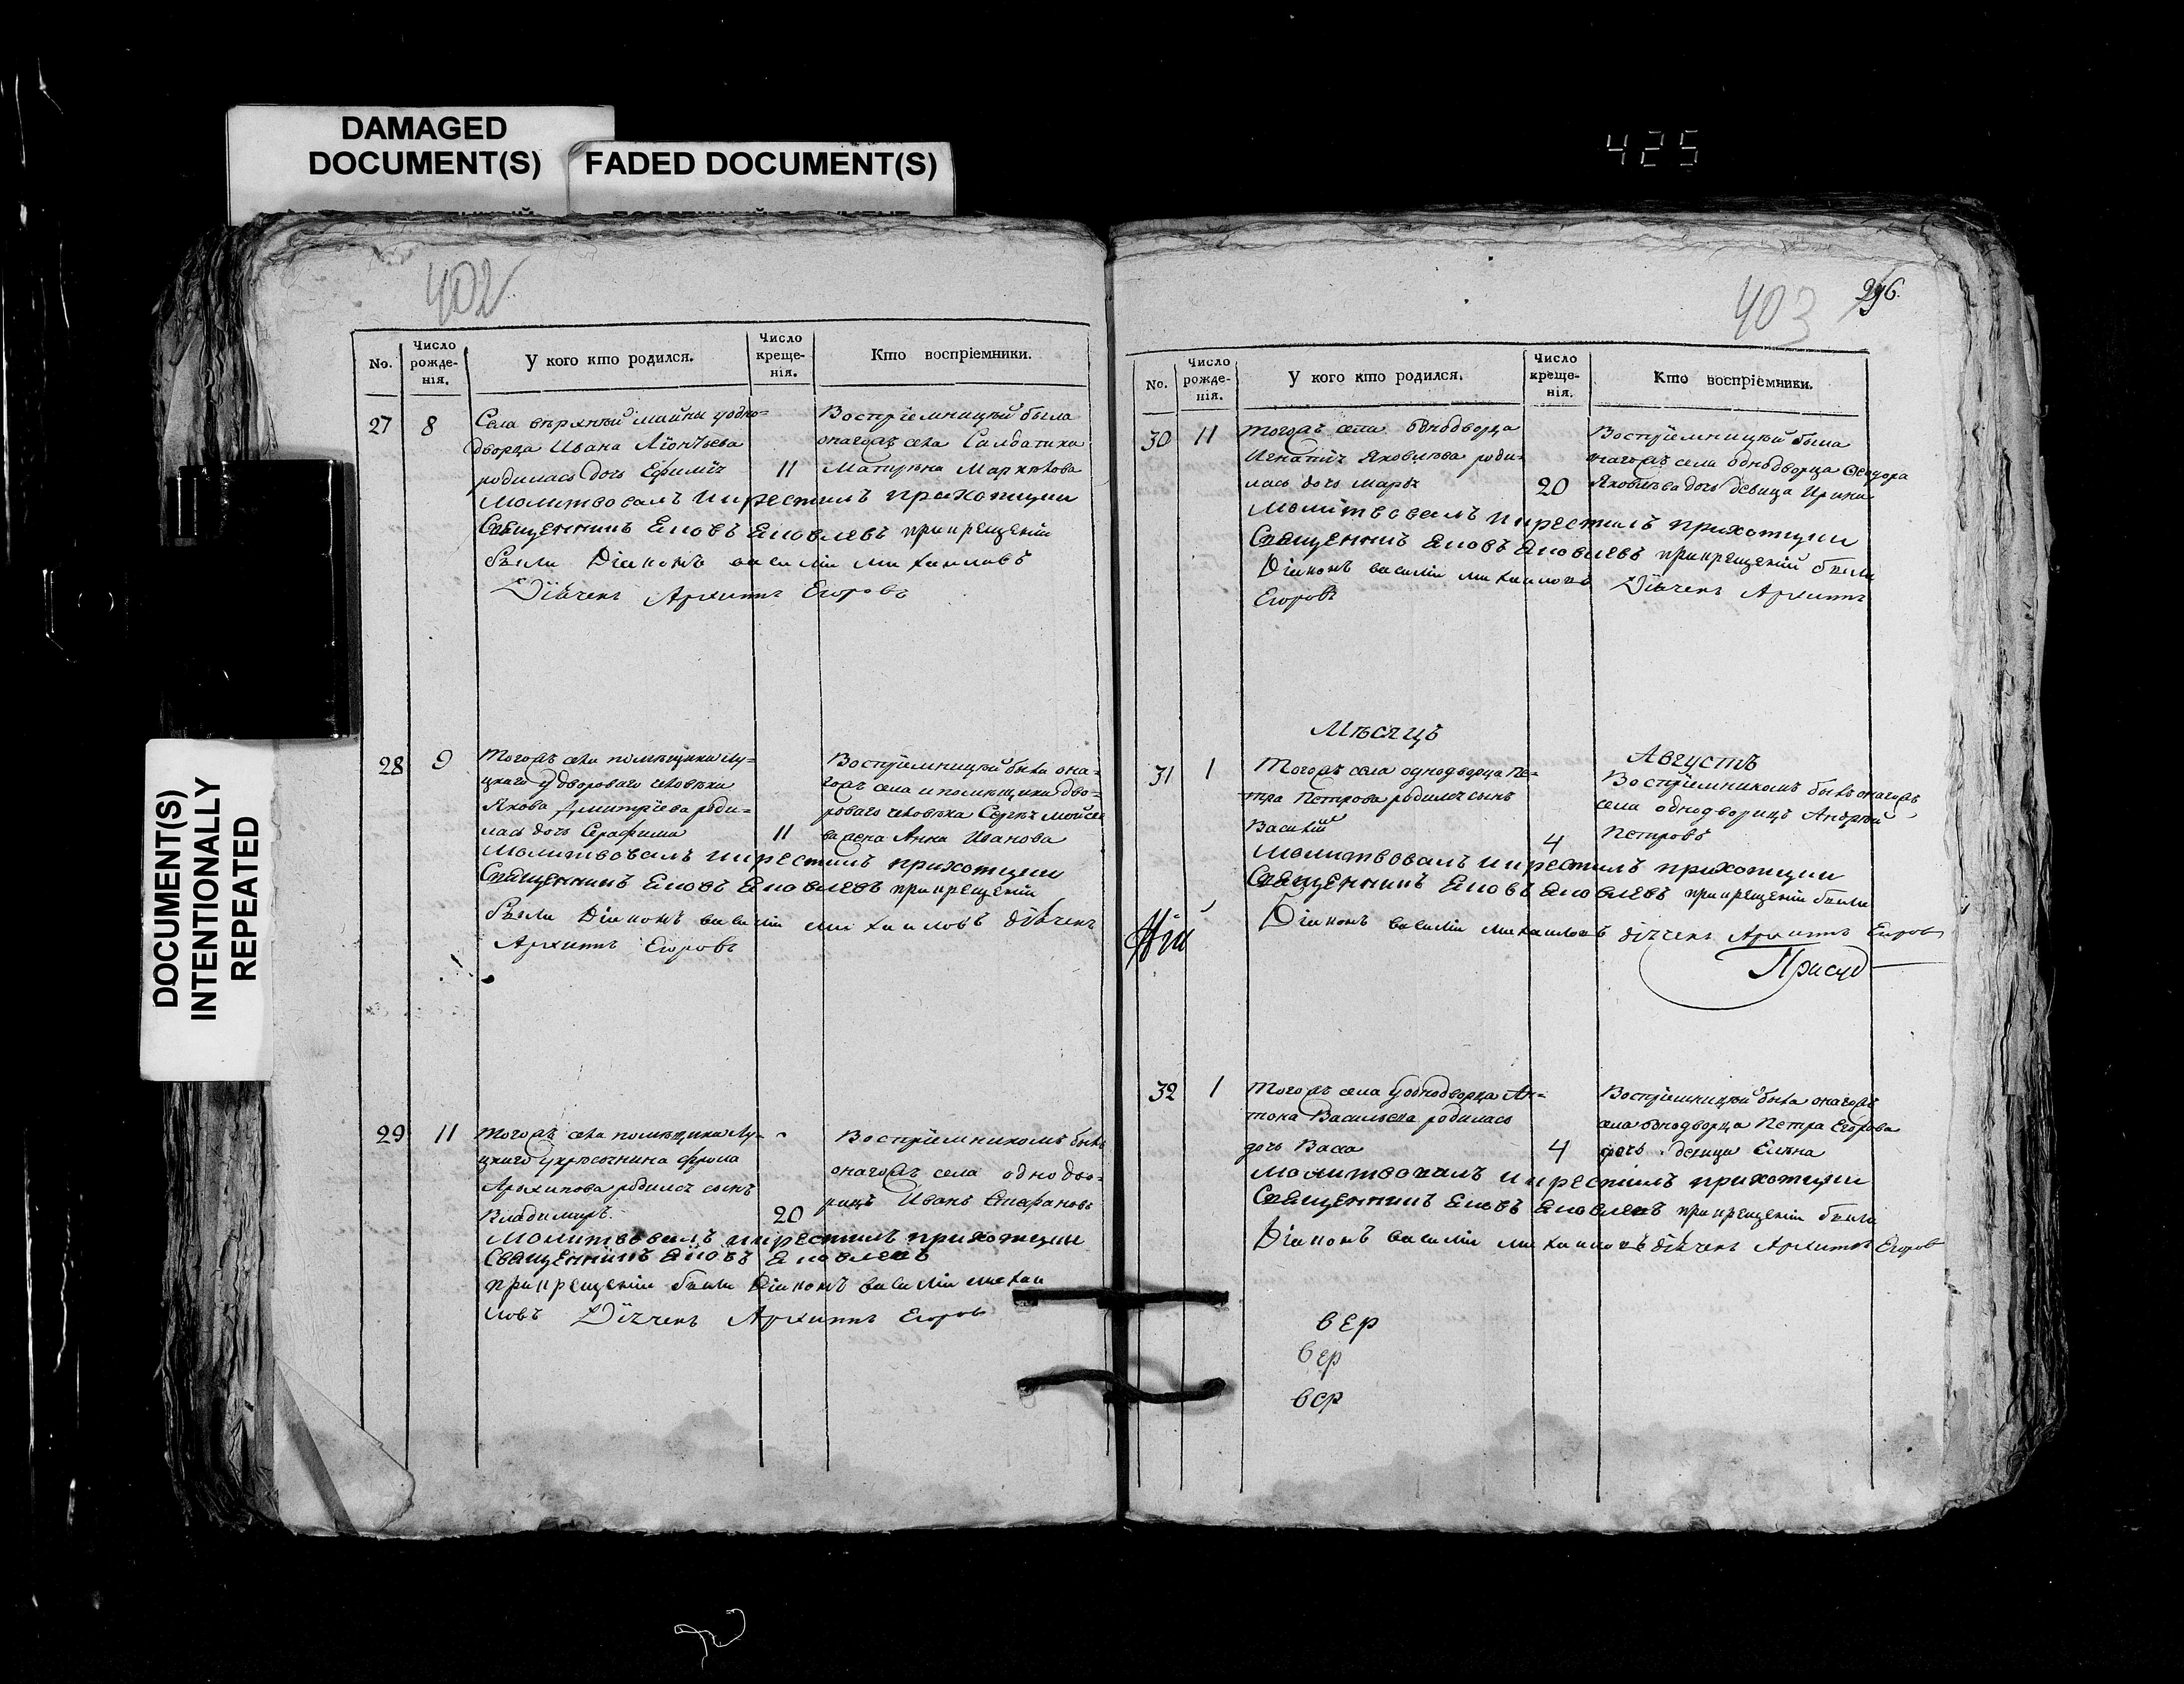 DAMAGED
DOCUMENT(S)
FADED DOCUMENT(S)
425
DOCUMENT(S)
INTENTIONALLY
REPEATED
402
No.
Число рожде-нія.
У кого кто родился.
Число креще-нія.
Кто воспріемники.
27 8
Села верхней майны у одно=
дворца Ивана Леонтьева
родилась дочь 11
Воспріемницей была
оногожъ села Салдатика
Матрена
Молитвовалъ и крестилъ приходцкии
Священникъ Ековъ Ековлевъ при крещеніи
были Діаконъ василіи михаиловъ
Дьячекъ Архипъ Егоровъ
28 9
Тогожъ села помещика Лу=
цкаго у двороваго человека
Якова Дмитріева роди=
лась дочь Серафима 11
Воспріемницей была она=
гожъ села и помещика дво=
роваго человека Сергея Моисее
ва жена Анна Иванова
Молитвовалъ и крестилъ приходцкии
Священникъ Ековъ Ековлевъ при крещеніи
были Діаконъ василіи михаиловъ дьячекъ
Архипъ Егоровъ
29 11
Тогожъ села помещика Лу=
цкаго у крестьянина фрола
Архипова родился сынъ
Владимиръ. 20
Воспріемникомъ былъ
оногожъ села однодво=
рецъ Иванъ Епифановъ
Молитвовалъ и крестилъ приходцкии
Священникъ Ековъ Ековлевъ
при крещеніи были Діаконъ василіи михаи
ловъ Дьячекъ Архипъ Егоровъ
403
296.
No.
Число рожде-нія.
У кого кто родился.
Число креще-нія.
Кто воспріемники.
30 11
Тогожъ села однодворца
Игнатія Яковлева роди=
лась дочь Марья 20
Воспріемницей была
оногожъ села однодворца Феодора
Яковлева дочь девица Ирина
Молитвовалъ и крестилъ приходцкии
Священникъ Ековъ Ековлевъ при крещеніи были
Діаконъ василіи михаиловъ Дьячекъ Архипъ
Егоровъ
Мѣсяцъ
Августъ
31 1
Тогожъ села однодворца Пе=
тра Петрова родился сынъ
Василій 4
Воспріемникомъ былъ оногожъ
села однодворецъ Андрей
Петровъ
Молитвовалъ и крестилъ приходцкии
Священникъ Ековъ Ековлевъ при крещеніи были
Діаконъ василіи михаиловъ дьячекъ Архипъ Егоровъ
Присуд
32 1
Тогожъ села у однодворца Ан=
тона Васильева родилась
дочь Васа 4
Воспріемницей была оногожъ
села однодворца Петра Егорова
дочь девица Елена
Молитвовалъ и крестилъ приходцкии
Священникъ Ековъ Ековлевъ при крещеніи были
Діаконъ василіи михаиловъ дьячекъ Архипъ Егоровъ
вер
вер
вер